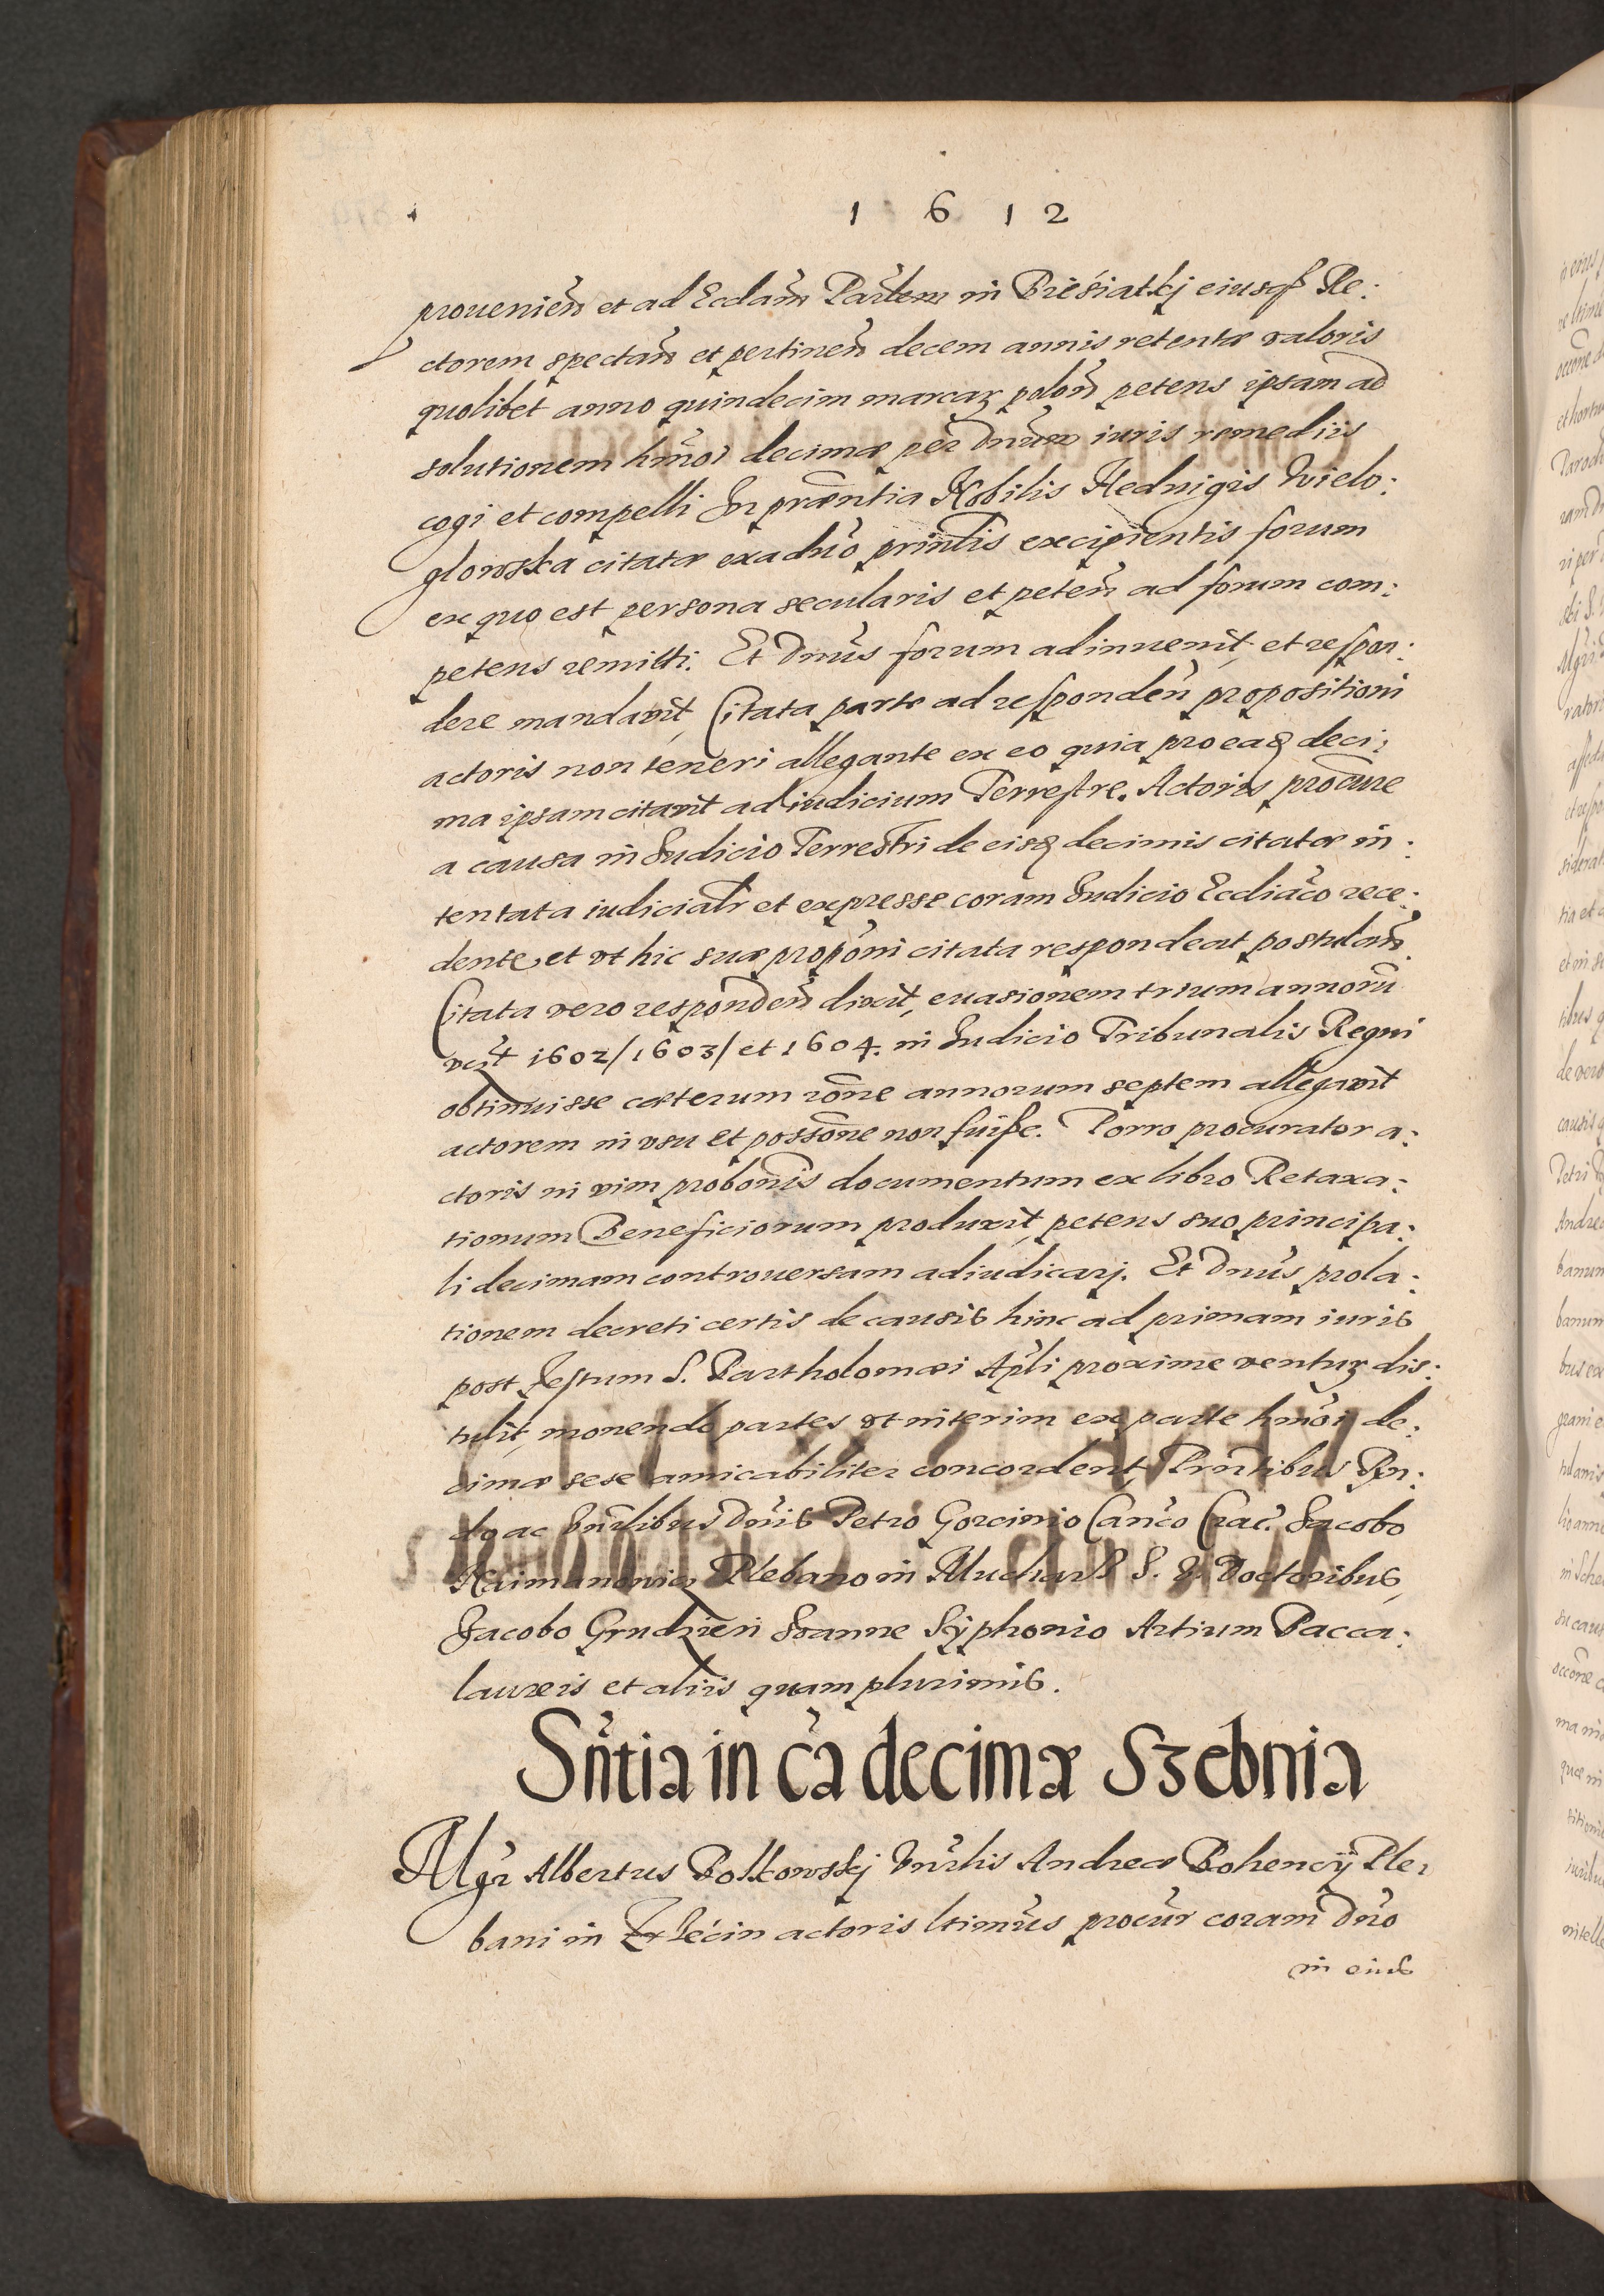 1 6 1 2
prouenien̄ et ad Eccłam Parłem in Brzésiatkj eiusqȝ Re:
ctorem spectan̄ et pertinen̄ decem annis retentæ valoris
quolibet anno quindecim marcaꝝ polon̄ petens ipsam ad
solutionem hm̄oi decimæ per Dnūm iuris remediis
cogi et compelli In præntia Nobilis Hedvigis Wielo:
glowska citatæ ex aduo prin̄lis excipientis forum
ex quo est persona secularis et peten̄ ad forum com:
petens remitti. Et Dnūs forum adinuenit, et respon:
dere mandauit, Citata parte ad responden̄ propositioni
actoris non teneri allegante ex eo quia pro eaꝺ deci:
ma ipsam citauit ad iudicium Terrestre. Actoris procūre
a causa in Iudicio Terrestri de eisꝺ decimis citatæ in:
tentata iudicialr et expresse coram Iudicio Ecclíaco rece:
dente, et vt hic suæ propōni citata respondeat postulan̄
Citata vero responden̄ dixit, euasionem trium annorū
vcȝt 1602/1603/ et 1604. in Iudicio Tribunalis Regni
obtinuisse cæterum rōne annorum septem allegauit
actorem in vsu et possōne non fuiſse. Porro procurator a:
ctoris in vim probōnis documentum ex libro Retaxa:
tionum Beneficiorum produxit, petens suo principa:
li decimam controuersam adiudicarj. Et Dnūs prola:
tionem decreti certis de causis hinc ad primam iuris
post Festum S. Bartholomæi Apłi proxime ventuꝝ dis:
tulit, monendo partes vt interim ex parte hm̄oi de:
cimæ sese amicabiliter concordent, Prn̄tibus Rn:
do ac Vn̄rlibus Dnīs Petro Gorcinio Can̄co Crac. Iacobo
Plebano in Mucharz S. T. Doctoribus,
Iacobo Ioanne Syphonio Artium Bacca:
laureis et aliis quam plurimis.
Sn̄tia in cā decimæ Szebnia
Mgr Albertus Polkowskj Vn̄rlis Andreæ Bohencÿ Ple:
bani in actoris ltimūs procūr coram Dn̄o
in eius